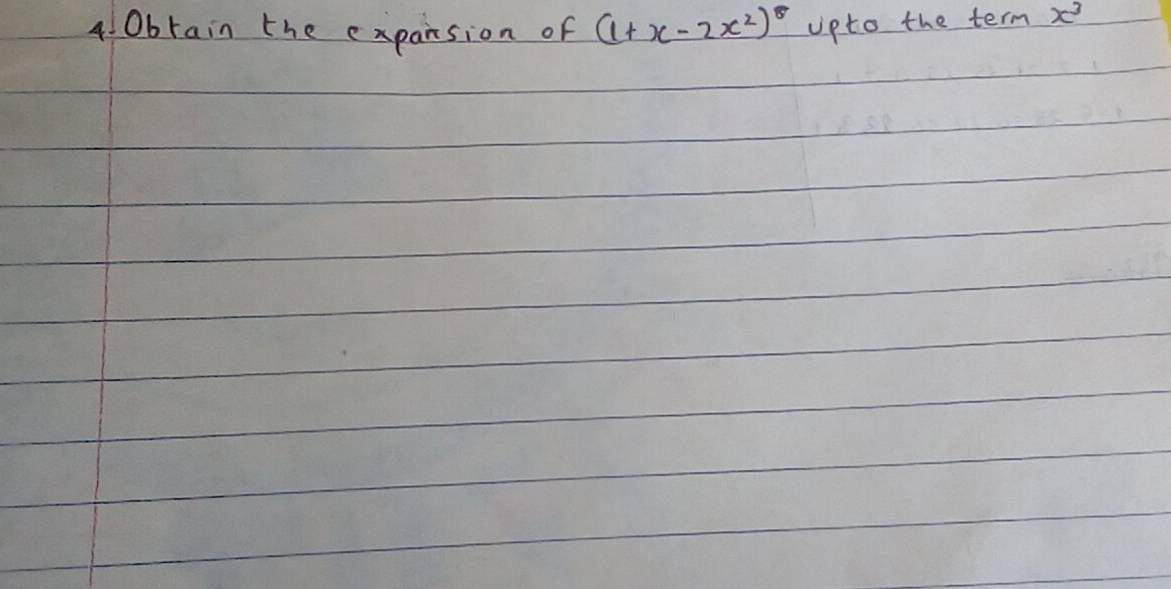 4. Obtain the expansion of (1+x-2x²)⁸ upto the term x³